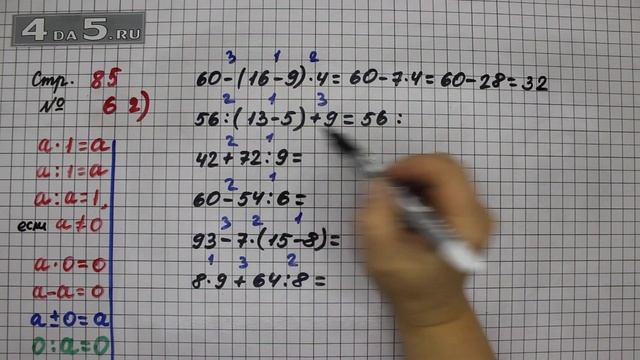 4 DA 5.RU
Стр. 85
№ 6 2)
a · 1 = a
a : 1 = a
a : a = 1,
если a ≠ 0
a · 0 = 0
a - a = 0
a ± 0 = a
0 : a = 0
3 1 2
60 - (16 - 9) · 4 = 60 - 7 · 4 = 60 - 28 = 32
2 1 3
56 : (13 - 5) + 9 = 56 :
2 1
42 + 72 : 9 =
2 1
60 - 54 : 6 =
3 2 1
93 - 7 · (15 - 8) =
1 3 2
8 · 9 + 64 : 8 =